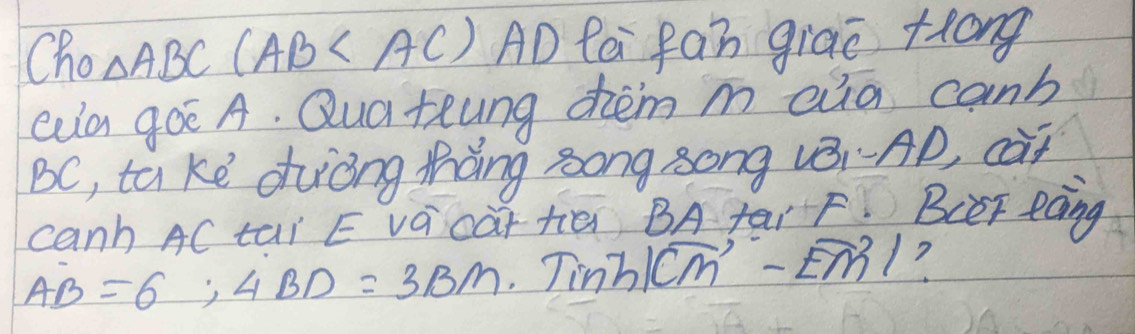 Cho ΔABC (AB < AC) AD là fân giác trong
của góc A. Qua trung điểm M của cạnh
BC, ta kẻ đường thẳng song song với AD, cắt
cạnh AC tại E và cắt tia BA tại F. Biết rằng
AB = 6 ; 4BD = 3BM. Tính |\overrightarrow{CM} - \overrightarrow{EM}|?